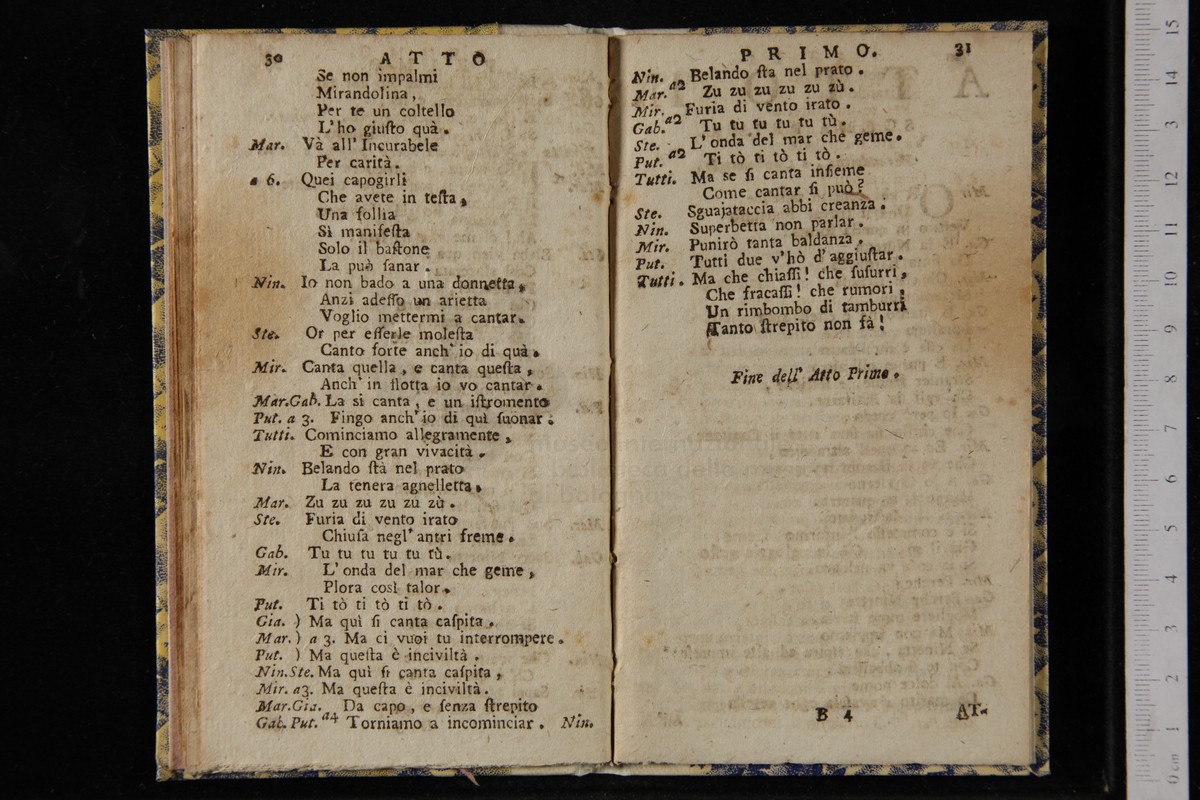 30 ATTO
Se non impalmi
Mirandolina,
Per te un coltello
L'ho giuſto quà.
Mar. Và all' Incurabele
Per carità.
a 6. Quei capogirli
Che avete in teſta,
Una follia
Sì manifeſta
Solo il baſtone
La può ſanar.
Nin. Io non bado a una donnetta,
Anzi adeſſo un arietta
Voglio mettermi a cantar.
Ste. Or per eſſerle moleſta
Canto forte anch' io di quà.
Mir. Canta quella, e canta queſta,
Anch' in flotta io vo cantar.
Mar.Gab. La si canta, e un iſtromento
Put. a 3. Fingo anch' io di quì ſuonar.
Tutti. Cominciamo allegramente,
E con gran vivacità.
Nin. Belando ſtà nel prato
La tenera agnelletta,
Mar. Zu zu zu zu zu zù.
Ste. Furia di vento irato
Chiuſa negl' antri freme.
Gab. Tu tu tu tu tu tù.
Mir. L' onda del mar che geme,
Plora così talor.
Put. Ti tò ti tò ti tò.
Gia. ) Ma quì ſi canta caſpita.
Mar. ) a 3. Ma ci vuoi tu interrompere.
Put. ) Ma queſta è inciviltà.
Nin.Ste. Ma quì ſi canta caſpita,
Mir. a3. Ma queſta è inciviltà.
Mar.Gia. Da capo, e ſenza ſtrepito
Gab.Put. a4 Torniamo a incominciar. Nin.
PRIMO. 31
Nin. Belando ſta nel prato.
Mar. a2 Zu zu zu zu zu zù.
Mir. Furia di vento irato.
Gab. a2 Tu tu tu tu tu tù.
Ste. L' onda del mar che geme.
Put. a2 Ti tò ti tò ti tò.
Tutti. Ma se ſi canta inſieme
Come cantar ſi può?
Ste. Sguajataccia abbi creanza.
Nin. Superbetta non parlar.
Mir. Punirò tanta baldanza,
Put. Tutti due v'hò d'aggiuſtar.
Tutti. Ma che chiaſſi! che ſuſurri,
Che fracaſſi! che rumori,
Un rimbombo di tamburri
Tanto ſtrepito non fà!
Fine dell' Atto Primo.
B 4 AT-